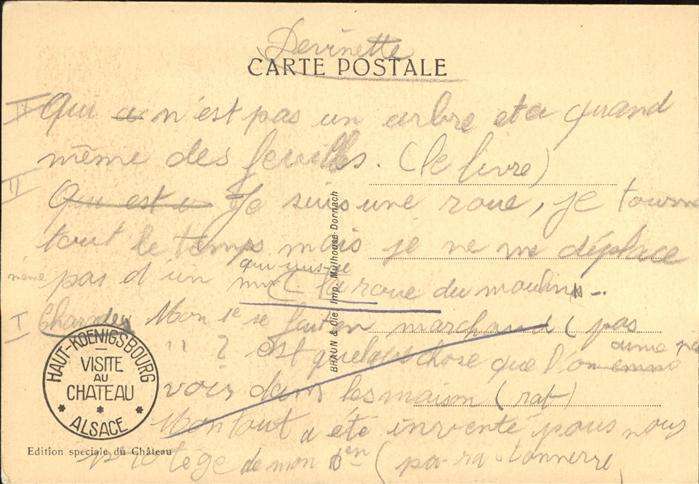 Devinette
CARTE POSTALE
I Qui a n'est pas un arbre et a quand
même des feuilles. (le livre)
II Qu est a Je suis une roue, je tourne
tout le temps mais je ne me déplace
même pas d'un
la roue du moulin
I Charades Mon 1e se fait en marchand (pas
" 2 est quelque chose que l'on aime pas
voir dans les maison (rat)
Mon tout a été invente pour nous
protège de mon (pa-ra-tonnerre
HAUT-KOENIGSBOURG
VISITE
AU
CHATEAU
ALSACE
Edition speciale du Château
BRAUN & Cie, Imp. Mulhouse-Dornach